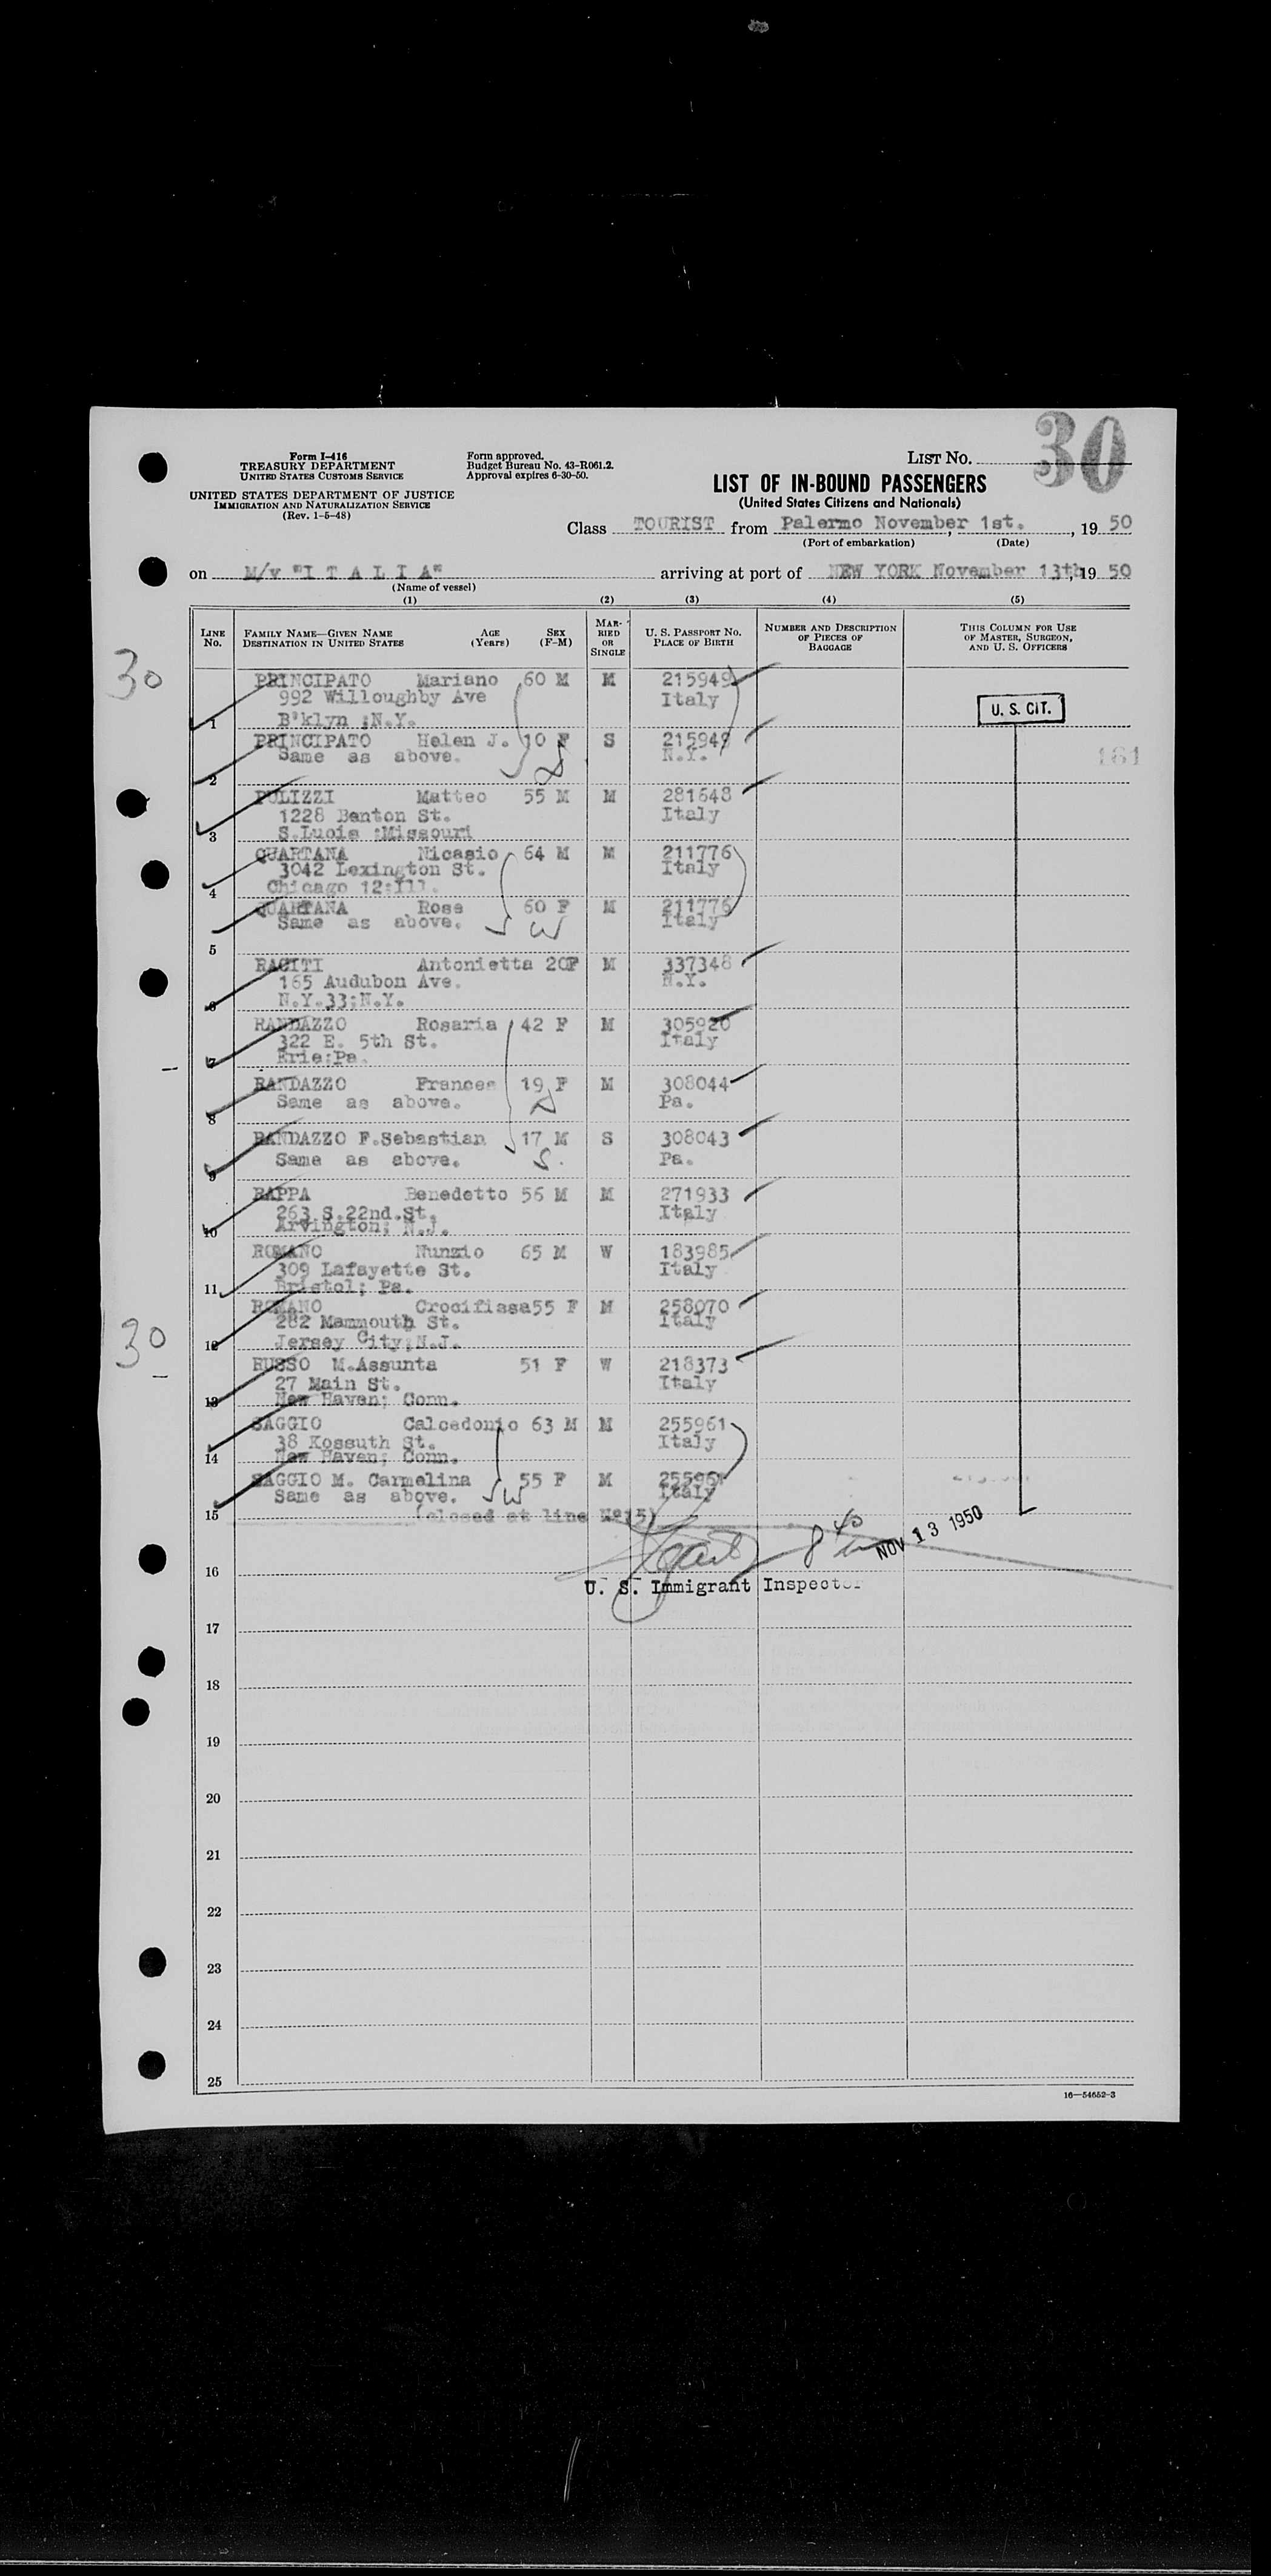 30
Form I-416
TREASURY DEPARTMENT
UNITED STATES CUSTOMS SERVICE
Form approved.
Budget Bureau No. 43-R061.2.
Approval expires 6-30-50.
LIST NO.
UNITED STATES DEPARTMENT OF JUSTICE
IMMIGRATION AND NATURALIZATION SERVICE
(Rev. 1-5-48)
LIST OF IN-BOUND PASSENGERS
(United States Citizens and Nationals)
Class TOURIST from Palermo November 1st., 19 50
(Port of embarkation) (Date)
on M/v "I T A L I A" arriving at port of NEW YORK November 13th, 19 50
(Name of vessel)
(1) (2) (3) (4) (5)
LINE No. FAMILY NAME—GIVEN NAME DESTINATION IN UNITED STATES AGE (Years) SEX (F-M) MARRIED OR SINGLE U. S. PASSPORT NO. PLACE OF BIRTH NUMBER AND DESCRIPTION OF PIECES OF BAGGAGE THIS COLUMN FOR USE OF MASTER, SURGEON, AND U. S. OFFICERS
30
PRINCIPATO Mariano 60 M M 215949
992 Willoughby Ave Italy
U. S. CIT.
1 B'klyn ;N.Y.
PRINCIPATO Helen J. 10 F S 215949
Same as above. N.Y. 161
2
PULIZZI Matteo 55 M M 281648
1228 Benton St. Italy
3 S.Luois :Missouri
QUARTANA Nicasio 64 M M 211776
3042 Lexington St. Italy
4 Chicago 12:Ill.
QUARTANA Rose 60 F M 211776
Same as above. W Italy
5
RACITI Antonietta 20F M 337348
165 Audubon Ave. N.Y.
6 N.Y.33;N.Y.
RANDAZZO Rosaria 42 F M 305920
322 E. 5th St. Italy
7 Erie;Pa.
RANDAZZO Frances 19 F M 308044
Same as above. Pa.
8
RANDAZZO F.Sebastian 17 M S 308043
Same as above. S. Pa.
9
RAPPA Benedetto 56 M M 271933
263 S.22nd.St. Italy
10 Arvington; N.J.
ROMANO Nunzio 65 M W 183985
309 Lafayette St. Italy
11 Bristol; Pa.
ROMANO Crocifissa55 F M 258070
282 Mammouth St. Italy
12 Jersey City;N.J.
30
RUSSO M.Assunta 51 F W 218373
27 Main St. Italy
13 New Haven; Conn.
SAGGIO Calcedonio 63 M M 255961
38 Kossuth St. Italy
14 New Haven; Conn.
SAGGIO M. Carmelina 55 F M 255961
Same as above. W Italy
15 (closed at line Nº15)
NOV 13 1950
16
U. S. Immigrant Inspector
17
18
19
20
21
22
23
24
25
16—54652-3